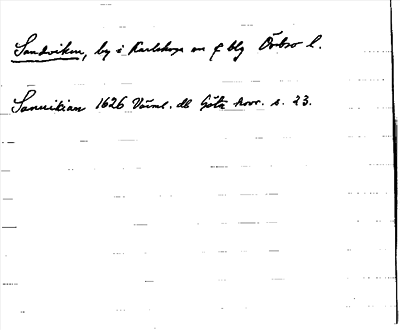 Sandviken, by i Karlskoga sn o blg Örebro l.
Sanuikian 1626 Värml. db Göta hovr. s. 23.